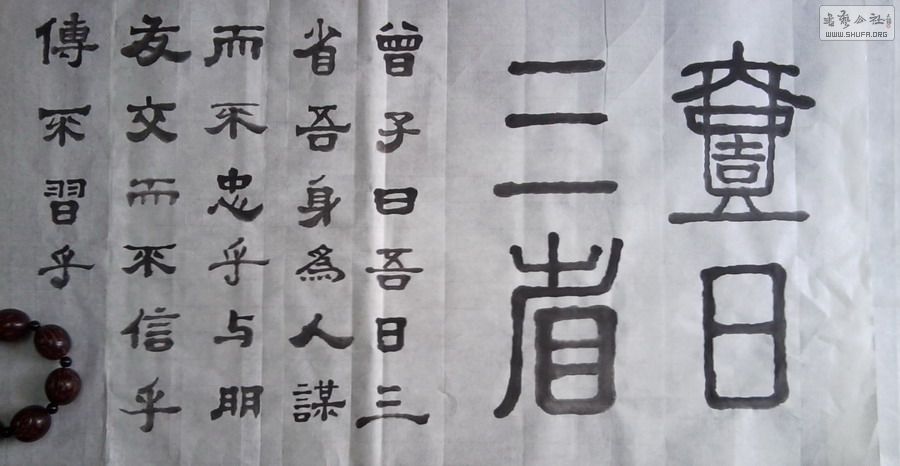 壹日
三省
曾子曰吾日三
省吾身為人謀
而不忠乎与朋
友交而不信乎
傳不習乎
書藝公社
WWW.SHUFA.ORG